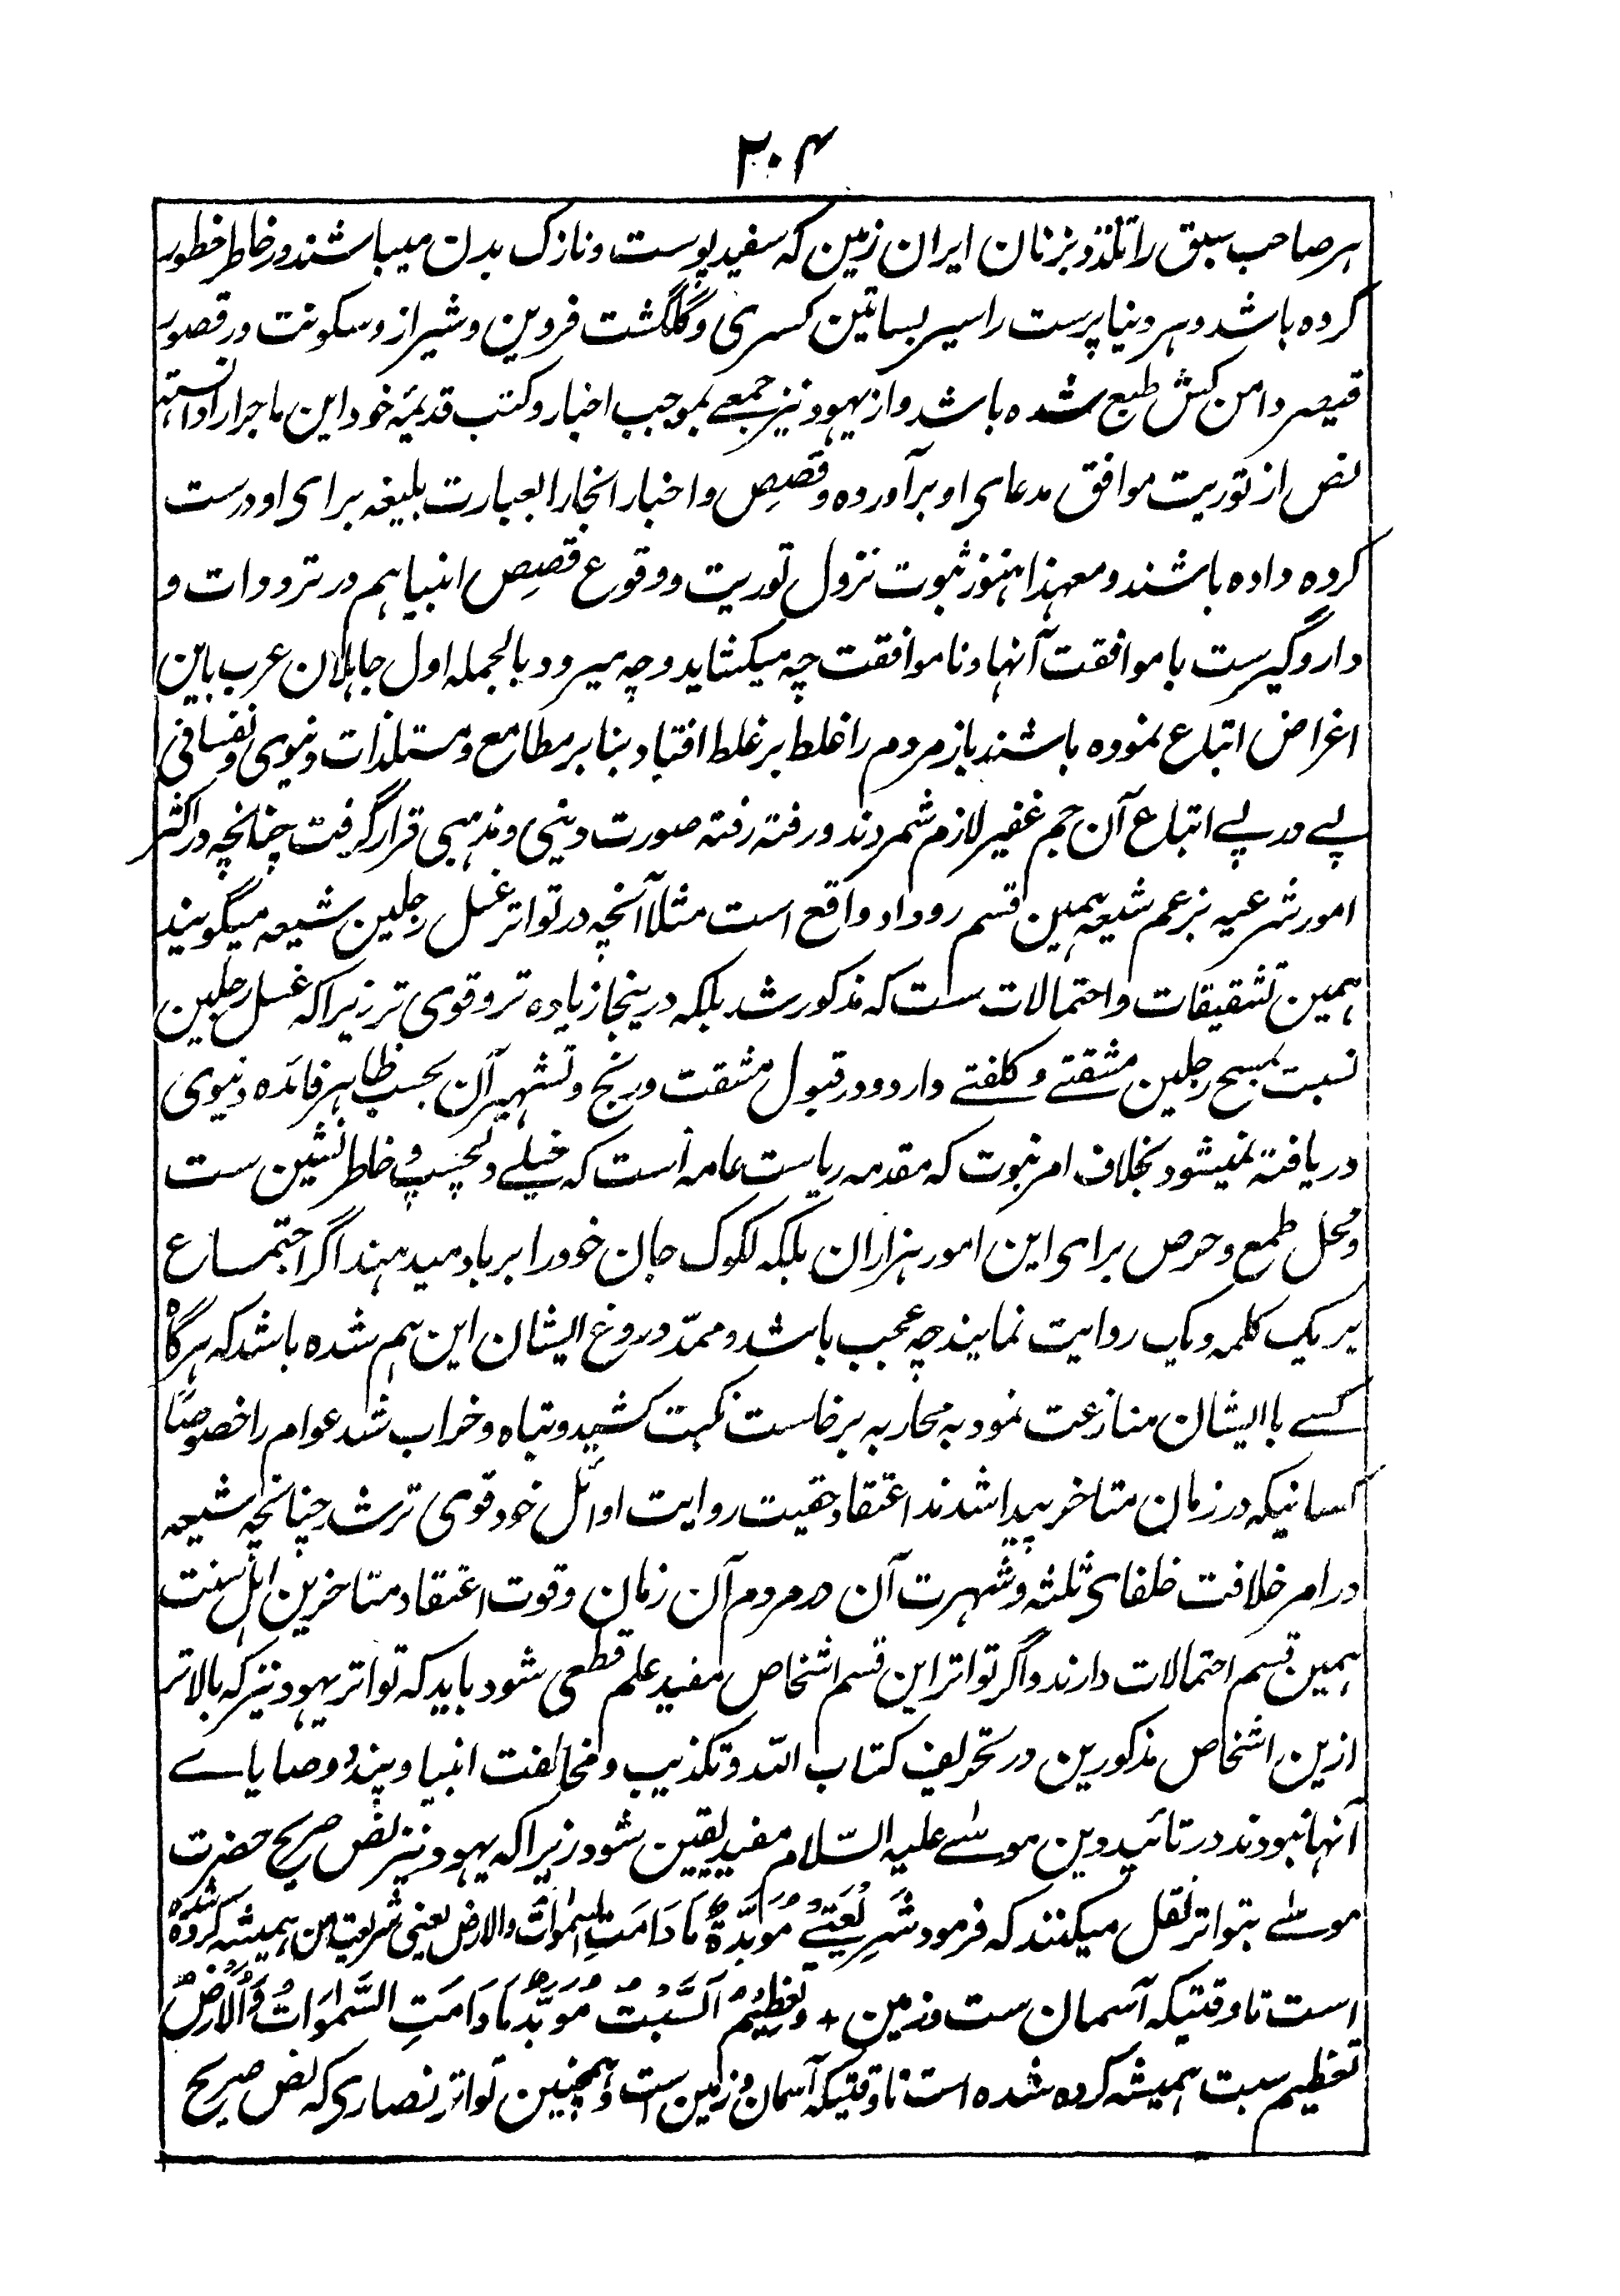 ۲۰۴
هر صاحب سبق را تلذذ بزنان ایران زمین که سفید پوست و نازک بدن میباشند در خاطر خطور
کرده باشد و هر دنیا پرست را سیر بساتین کسری و گلگشت قزوین و شیراز و سکونت در قصور
قیصر دامن کش طبع شده باشد و از یهود نیز جمعے بموجب اخبار و کتب قدیمۀ خود این ماجرا را دانسته
نص از توریت موافق مدعای او برآورده و قصص و اخبار انجا را بعبارت بلیغه برای او درست
کرده داده باشند و معهذا هنوز ثبوت نزول توریت و وقوع قصص انبیا هم در ترددات و
دار و گیرست با موافقت آنها و نا موافقت چه میکشاید و چه میرود بالجمله اول جاهلان عرب باین
اغراض اتباع نموده باشند باز مردم را غلط بر غلط افتاد بنا بر مطامع و مستلذات دنیوی و نفسانی
پے در پے اتباع آن جم غفیر لازم شمردند و رفته رفته صورت دینی و مذهبی قرار گرفت چنانچه در اکثر
امور شرعیه بزعم شیعه همین قسم روداد واقع است مثلا آنچه در تواتر غسل رجلین شیعه میگویند
همین تشقیقات و احتمالات ست که مذکور شد بلکه درینجا زیاده تر و قوی تر زیرا که غسل رجلین
نسبت بمسح رجلین مشقتے و کلفتے دارد و در قبول مشقت و رنج و تشهیر آن بحسب ظاهر فائده دنیوی
دریافته نمیشود بخلاف امر نبوت که مقدمه ریاست عامه است که خیلے دلچسپ و خاطر نشین ست
و محل طمع و حرص برای این امور هزاران بلکه لکوک جان خود را برباد میدهند اگر اجتماع
بر یک کلمه و یک روایت نمایند چه عجب باشد و ممدّ دروغ ایشان این هم شده باشد که هرگاه
کسے با ایشان منازعت نمود به محاربه برخاست نکبت کشید و تباه و خراب شد عوام را خصوصًا
کسانیکه در زمان متاخر پیدا شدند اعتقاد حقیت روایت اوائل خود قوی تر شد چنانچه شیعه
در امر خلافت خلفای ثلثه و شهرت آن در مردم آن زمان و قوت اعتقاد متاخرین اهل سنت
همین قسم احتمالات دارند و اگر تواتر این قسم اشخاص مفید علم قطعی شود باید که تواتر یهود نیز که بالاتر
ازین اشخاص مذکورین در تحریف کتاب الله و تکذیب و مخالفت انبیا و پند و وصایاے
آنها نبودند در تائید دین موسٰے علیه السّلام مفید یقین شود زیرا که یهود نیز نص صریح حضرت
موسٰے بتواتر نقل میکنند که فرمود شَرِیْعَتِےْ مُوَبَّدَةٌ مَا دَامَتِ السَّمٰوَاتُ والارض یعنی شریعت من همیشه کرده شده
است تا وقتیکه آسمان ست و زمین + وَتَعْظِیْمُ السَّبْتِ مُوَبَّدٌ مَا دَامَتِ السَّمٰوَاتُ وَالْاَرْضُ
تعظیم سبت همیشه کرده شده است تا وقتیکه آسمان و زمین ست و همچنین تواتر نصاری که نص صریح